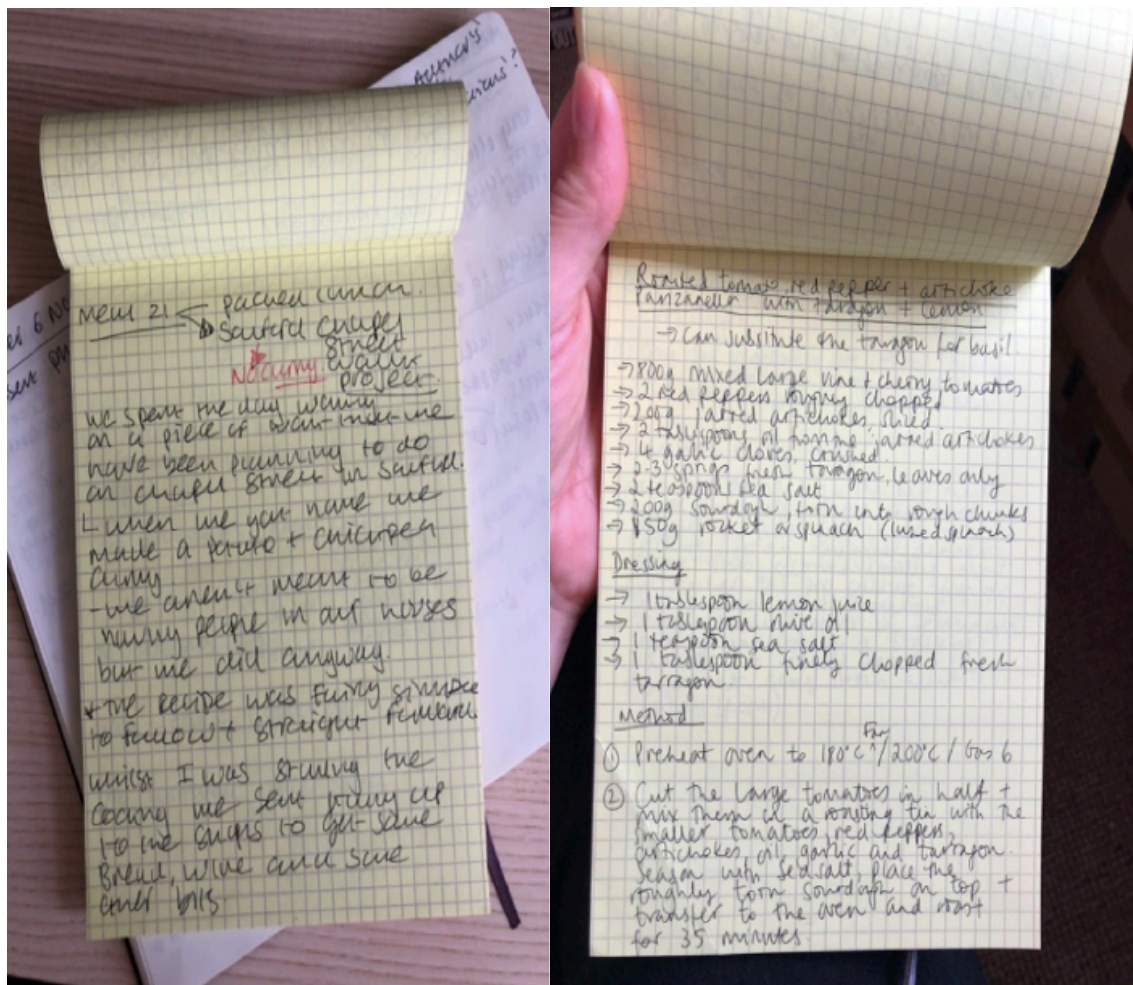 packed lunch.
Salford Chapel
Street
No curry walk
project.
we spent the day
on a piece of that we
have been planning to do
on chapel street in Salford.
when we got home we
made a potato + chickpea
curry
- we aren't meant to be
having people in our houses
but we did anyway.
the recipe was fairly simple
to follow + straight forward
whilst I was the
we sent up
to the shops to get some
Bread, wine and some
other bits.
Roasted tomato, red pepper + artichoke
Panzanella with tarragon + lemon
→ Can substitute the taragon for basil
→ 800g mixed large vine + cherry tomatoes
→ 2 red peppers roughly chopped
→ 200g jarred artichokes, sliced
→ 2 tablespoons oil from the jarred artichokes
→ 4 garlic cloves, crushed
→ 2-3 sprigs fresh tarragon, leaves only
→ 2 teaspoons sea salt
→ 200g sourdough, torn into rough chunks
→ 50g rocket or spinach (I used spinach)
Dressing
→ 1 tablespoon lemon juice
→ 1 tablespoon olive oil
→ 1 teaspoon sea salt
→ 1 tablespoon finely chopped fresh
tarragon.
Method
① Preheat oven to 180°C Fan/200°C/Gas 6
② Cut the large tomatoes in half +
mix them in a roasting tin with the
smaller tomatoes, red pepper,
artichokes, oil, garlic and tarragon.
Season with sea salt, place the
roughly torn sourdough on top +
transfer to the oven and roast
for 35 minutes